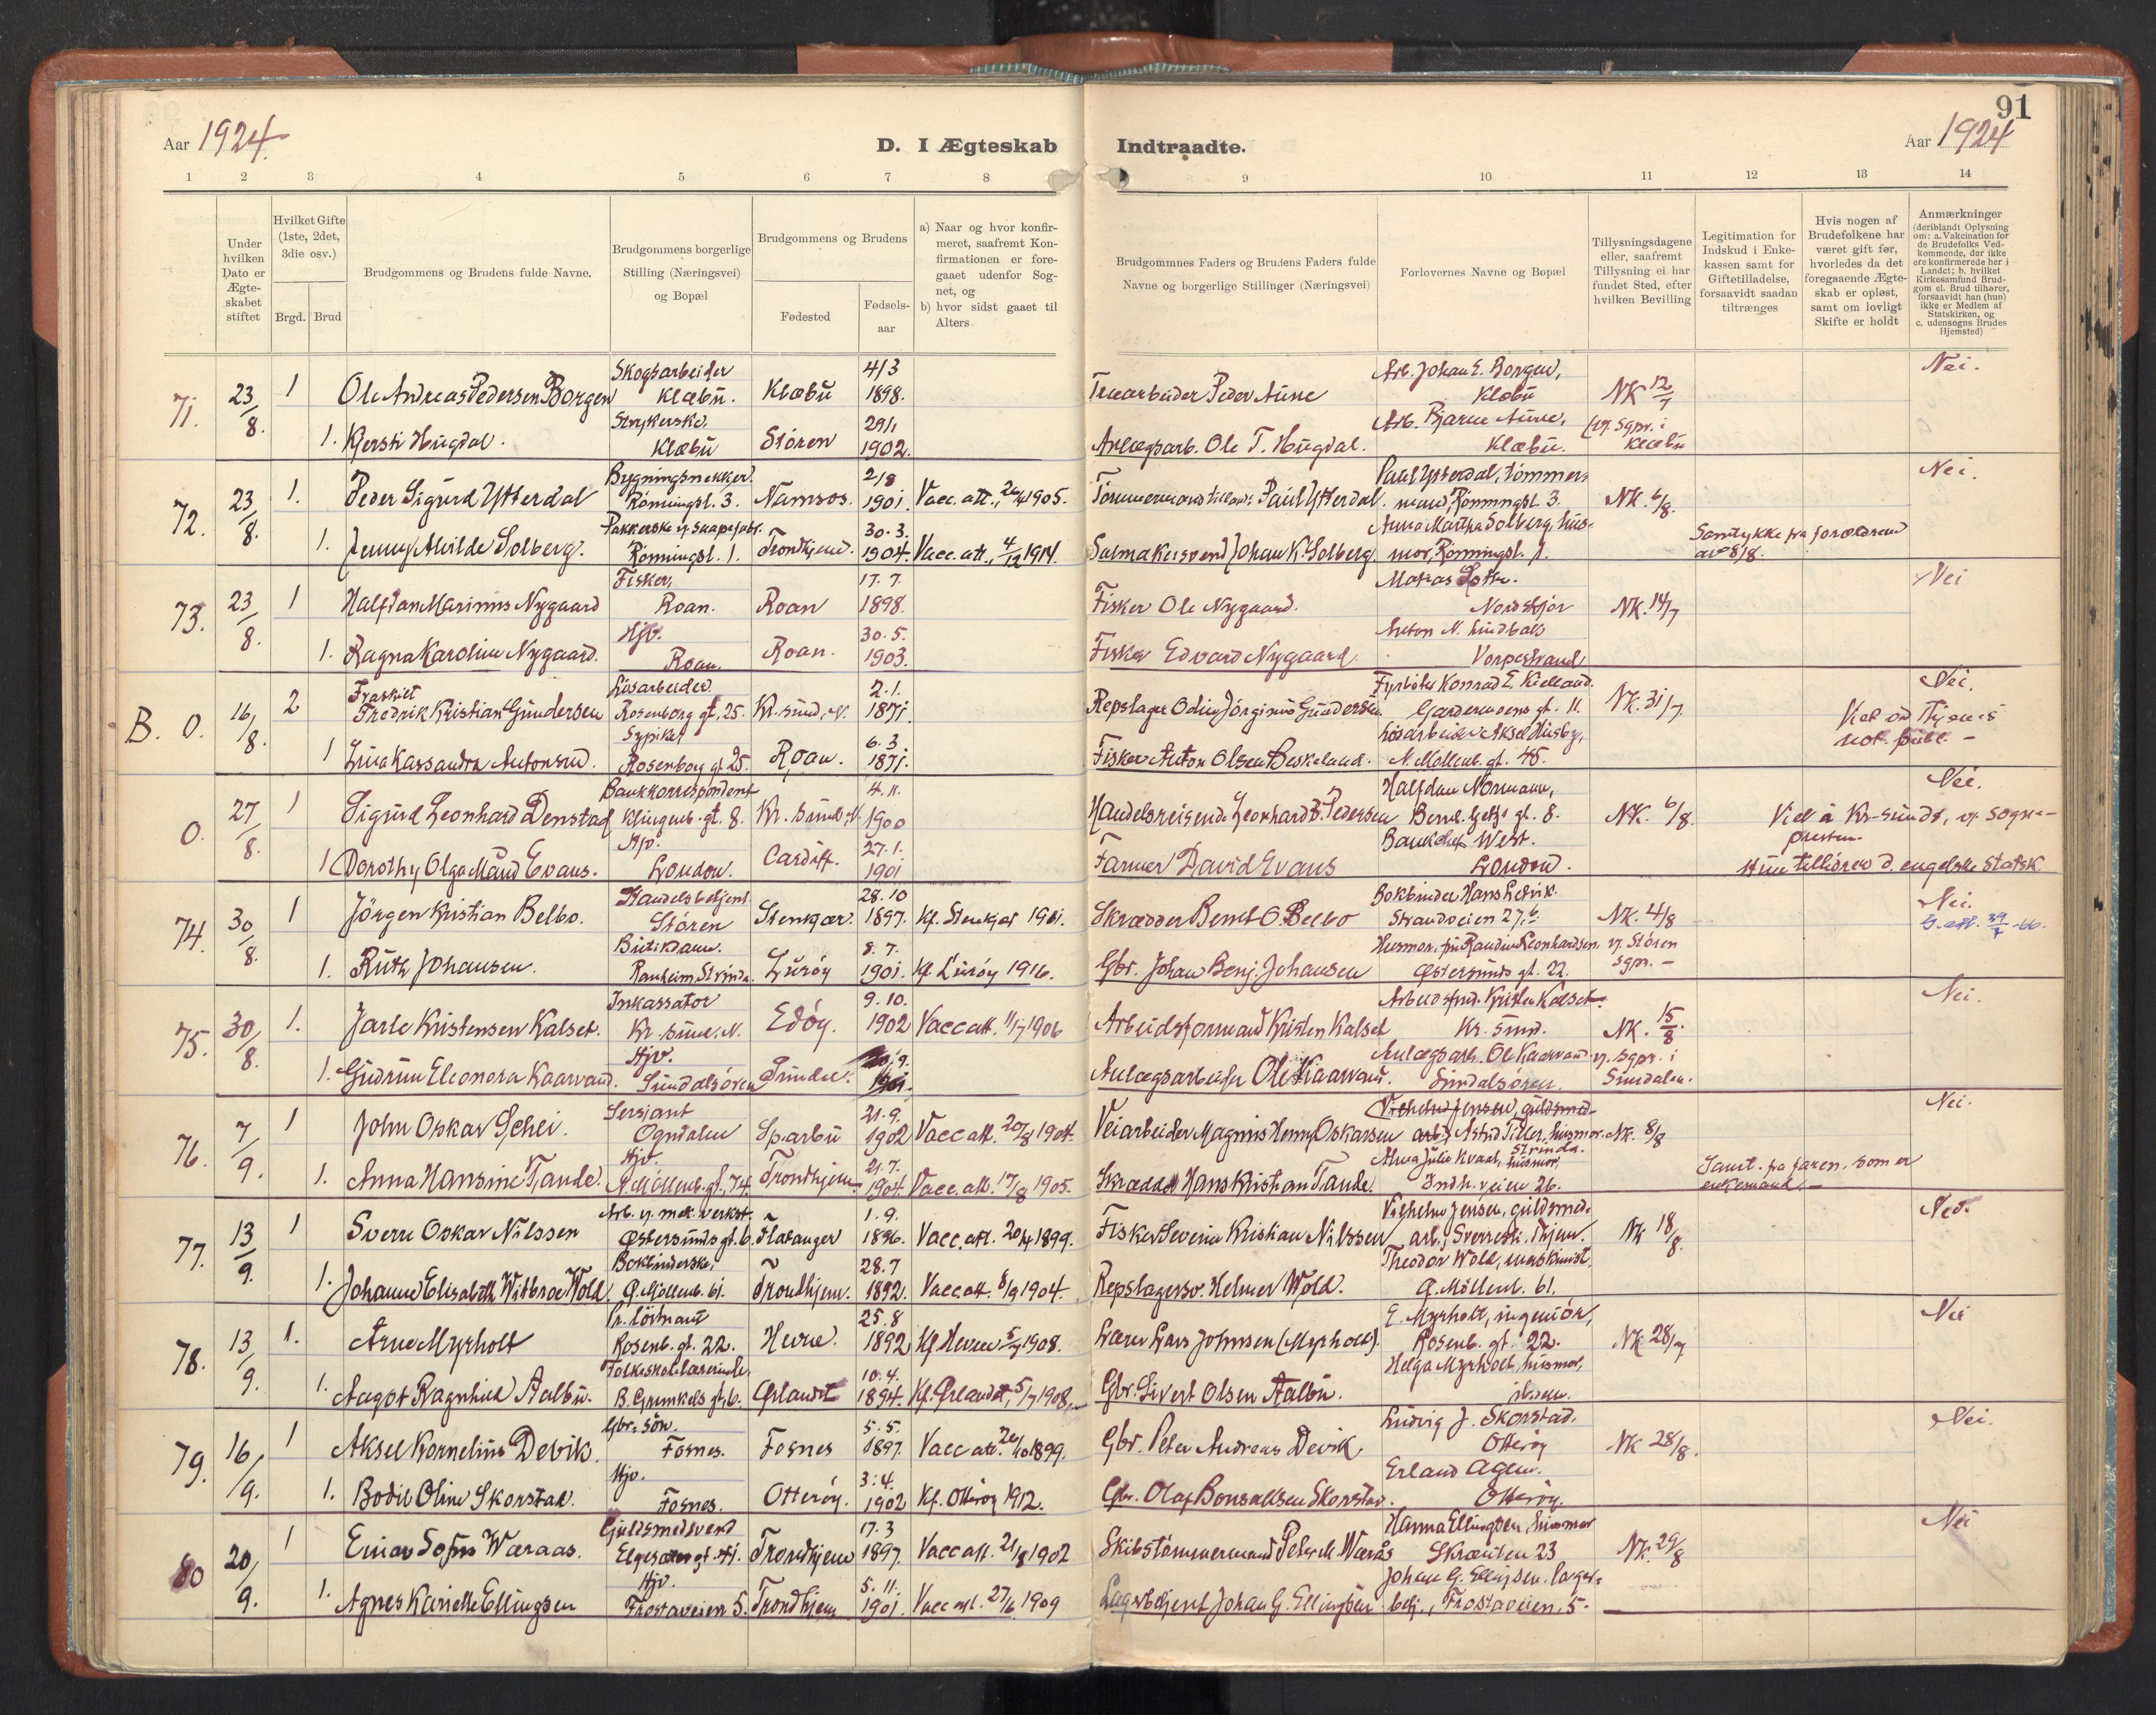 91
Aar 1924.
D. I Ægteskab Indtraadte.
Aar 1924
1 2 3 4 5 6 7 8 9 10 11 12 13 14
Under hvilken Dato er Ægte-skabet stiftet
Hvilket Gifte (1ste, 2det, 3die osv.)
Brgd. Brud
Brudgommens og Brudens fulde Navne.
Brudgommens borgerlige Stilling (Næringsvei) og Bopæl
Brudgommens og Brudens
Fødested
Fødsels-aar
a) Naar og hvor konfir-meret, saafremt Kon-firmationen er fore-gaaet udenfor Sog-net, og
b) hvor sidst gaaet til Alters
Brudgommnes Faders og Brudens Faders fulde Navne og borgerlige Stillinger (Næringsvei)
Forlovernes Navne og Bopæl
Tillysningsdagene eller, saafremt Tillysning ei har fundet Sted, efter hvilken Bevilling
Legitimation for Indskud i Enke-kassen samt for Giftetilladelse, forsaavidt saadan tiltrænges
Hvis nogen af Brudefolkene har været gift før, hvorledes da det foregaaende Ægte-skab er opløst, samt om lovligt Skifte er holdt
Anmærkninger (deriblandt Oplysning om: a. Vakcination for de Brudefolks Ved-kommende, der ikke ere konfirmerede her i Landet; b. hvilket Kirkesamfund Brud-gom el. Brud tilhører, forsaavidt han (hun) ikke er Medlem af Statskirken, og c. udensogns Brudes Hjemsted)
71. 23/8. 1 Ole Andreas Pedersen Borgen Skogsarbeider Klæbu. Klæbu 4/3 1898. Peder Aune Arb. Johan E. Borgen, Klæbu NK 12/7 Nei.
1. Kjersti Hugdal. Strykerske. Klæbu Støren 29/1 1902. Anlægsarb. Ole T. Hugdal. Arb. Bjarne Aune, Klæbu. v. sgpr. i Klæbu
72. 23/8. 1. Peder Sigurd Ytterdal Bygningsnekker. Rønningsl. 3. Namsos. 2/8 1901. Vacc. att., 1905. Paul Ytterdal. Paul Ytterdal, tømmermand, Rønningsl. 3. NK. 6/8. Nei.
1. Jenny Alvilde Solberg. Pakkerske v. saapefabr. Rønningsl. 1. Trondhjem. 30.3. 1904. Vacc. att., 4/12 1914. Salmakersvend Johan K. Solberg. Anna Martha Solberg, husmor, Rønningsl. 1. Samtykke fra forældrene av 8/8.
73. 23/8. 1 Halfdan Marinus Nygaard Fisker, Roan. Roan 17.7. 1898. Fisker Ole Nygaard. Nordskjør NK. 14/7 Nei
1. Ragna Karoline Nygaard. Hjv. Roan. Roan. 30.5. 1903. Fisker Edvard Nygaard. Anton N. Vorpestrand
B. 0. 16/8. 2 Fraskilt Fredrik Kristian Gundersen Løsarbeider. Rosenborg gt. 25. Kr.sund. N. 2.1. 1871. Repslager Odin Jørginus Gundersen. Fyrbøter Konrad E. Kielland. Gardemoens gt. 11. NK. 31/7. Nei.
1 Lina Kassandra Antonsen. Sypike Rosenborg gt. 25. Roan. 6.3 1871. Fisker Anton Olsen Beskeland. Løsarbeider Aksel Husby, N. Møllenb. gt. 45. not. publ. -
0. 27/8. 1 Sigurd Leonhard Denstad Bankkorrespondent Klingenb. gt. 8. Kr.sund. N. 4.11. 1900 Handelsreisende Leonhard B. Pedersen Halfdan Normann, gt. 8. NK. 6/8. Viet i Kr-sund, v. sogne-presten. Nei.
1 Dorothy Olga Maud Evans. Hjv. London. Cardiff. 27.1. 1901 Farmer David Evans Bankchef West. London. Hun tilhører d. engelske statsk.
74. 30/8. 1 Jørgen Kristian Belbo. Handelsbetjent. Støren Stenkjær. 28.10 1897. Kf. Stenkjær 1911. Skrædder Bernt O. Belbo Bokbinder Hans Ledvik. Strandveien 27. NK. 4/8 Nei.
1. Ruth Johansen. Butikdame. Ranheim, Strinda. Lurøy 8.7. 1901. Kf. Lurøy 1916. Gbr. Johan Benj. Johansen Husmor, fru Randine Leonhardsen, Østersunds gt. 22. v. Støren sgpr. -
75. 30/8. 1. Jarle Kristensen Kalset. Inkassator Kr.sund. N. Edøy. 9.10. 1902 Vacc att. 11/7 1906 Arbeidsformand Kristen Kalset Arbeidsfmd. Kristen Kalset. Kr. sund. NK. 15/8. Nei.
1. Gudrun Eleonora Kaarvand. Hjv. Sundalsøren 1901. Anlægsarbeider Ole Kaarvand. Anlægsarb. Ole Kaarvand Sundalsøren. v. sgpr. i Sundalen.
76. 7/9. 1 John Oskar Schei. Sersjant Ogndalen Sparbu 21.9. 1902 Vacc att. 20/8 1904. Veiarbeider Magnus Henry Oskarsen Vilhelm Jensen, guldsmed-arb. Astrid Tiller, husmor. Strinda. NK. 8/8 Nei.
1. Anna Hansine Tande. Hjv. N. Møllenb. gt. 74. Trondhjem. 21.7. 1904. Vacc. att. 17/8 1905. Skrædder Hans Kristian Tande. Alma Julie Kvaal, husmor, Indh. veien 26. Samt. fra faren, som er enkemand. -
77. 13/9. 1 Sverre Oskar Nilssen Arb. v. mek. verkst. Østersunds gt. 6. Flatanger 1.9. 1896. Vacc. att. 20/4 1899. Fisker Severin Kristian Nilssen Vilhelm Jensen, guldsmed-arb., Sverresli, Thjem. NK 18/8. Nei.
1. Johanne Elisabeth Witbroe Wold. Bokbinderske, Ø. Møllenb. 61. Trondhjem. 28.7 1892. Vacc att. 8/9 1904. Repslagersv. Helmer Wold. Theodor Wold, maskinist, Ø. Møllenb. 61.
78. 13/9. 1. Arne Myrholt Pr. løitnant Rosenb. gt. 22. Hevne. 25.8 1892 Kf. Hevne 5/7 1908. Lærer Lars Johnsen (Myrholt). E. Myrholt, ingeniør, Rosenb. gt. 22. NK 28/7 Nei
1. Aagot Ragnhild Aalbu. Folkeskolelærerinde, B. gt. 6. Ørlandet 10.4. 1894. Kf. Ørlandet, 5/7 1908. Gbr. Sivert Olsen Aalbu. Helga Myrholt, husmor, ibsem.
79. 16/9. 1 Aksel Kornelius Devik. Gbr. søn. Fosnes. Fosnes 5.5. 1897. Vacc att. 1899. Gbr. Peter Andreas Devik. Ludvig J. Skorstad. Otterøy NK 28/8. Nei.
1. Bodil Oline Skorstad. Hjv. Fosnes. Otterøy. 3.4. 1902 Kf. Otterøy 1912. Gbr. Olaf Skorstad. Erland Agem. Otterøy.
80 20/9. 1 Einar Sofus Wæraas. Guldsmedsvend Elgesæter gt. 41. Trondhjem 17.3 1897. Vacc att. 21/8 1902 Skibstømmermand Peter M. Wærås Hanna Ellingsen, husmor Skrænten 23 NK. 29/8 Nei
1. Agnes Kanelle Ellingsen Hjv. Frostaveien 5. Trondhjem 5.11. 1901. Vacc att. 27/6 1909 Lagerbetjent Johan G. Ellingsen. Johan G. Ellingsen, lager-betj., Frostaveien 5.